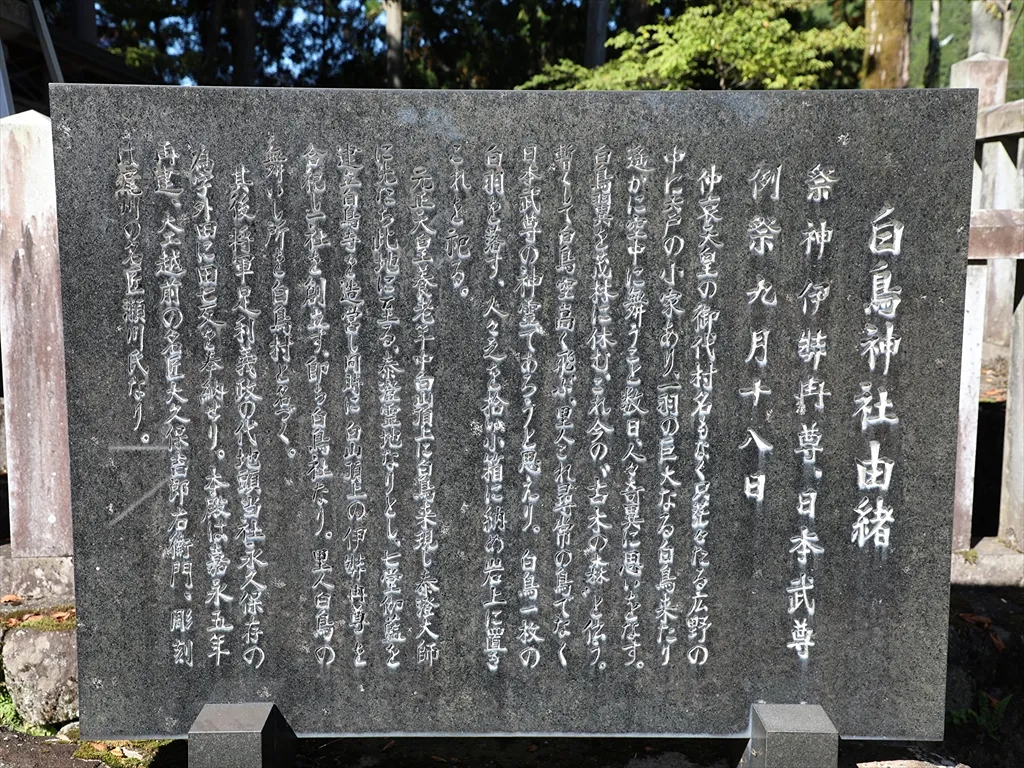 白鳥神社由緒
祭神 伊弉冉尊、日本武尊
例祭 九月十八日
仲哀天皇の御代村名もなく只茫々たる広野の
中に六戸の小家あり、一羽の巨大なる白鳥来たり
遙かに空中に舞うこと数日、人々奇異に思いをなす。
白鳥翼を茂林に休む、これ今の〝古木の森〟と伝う。
暫くして白鳥空高く飛ぶ。里人これ尋常の鳥でなく
日本武尊の神霊であろうと思えり。白鳥一枚の
白羽を落す、人々之を拾い小箱に納め岩上に置き
これを祀る。
元正天皇養老年中白山頂上に白鳥来現し泰澄大師
に先だち此地に至る、泰澄霊地なりとし、七堂伽藍を
建立白鳥寺を造営し同時に白山頂上の伊弉冉尊を
合祀し一社を創立す、即ち白鳥社なり。里人白鳥の
舞いし所を白鳥村と名づく。
其後将軍足利義政の代地頭当社永久保存の
為字外田に田七反を奉納せり。本殿は嘉永五年
再建、大工越前の名匠大久保吉郎右衛門、彫刻
は尾州の名匠瀬川氏なり。